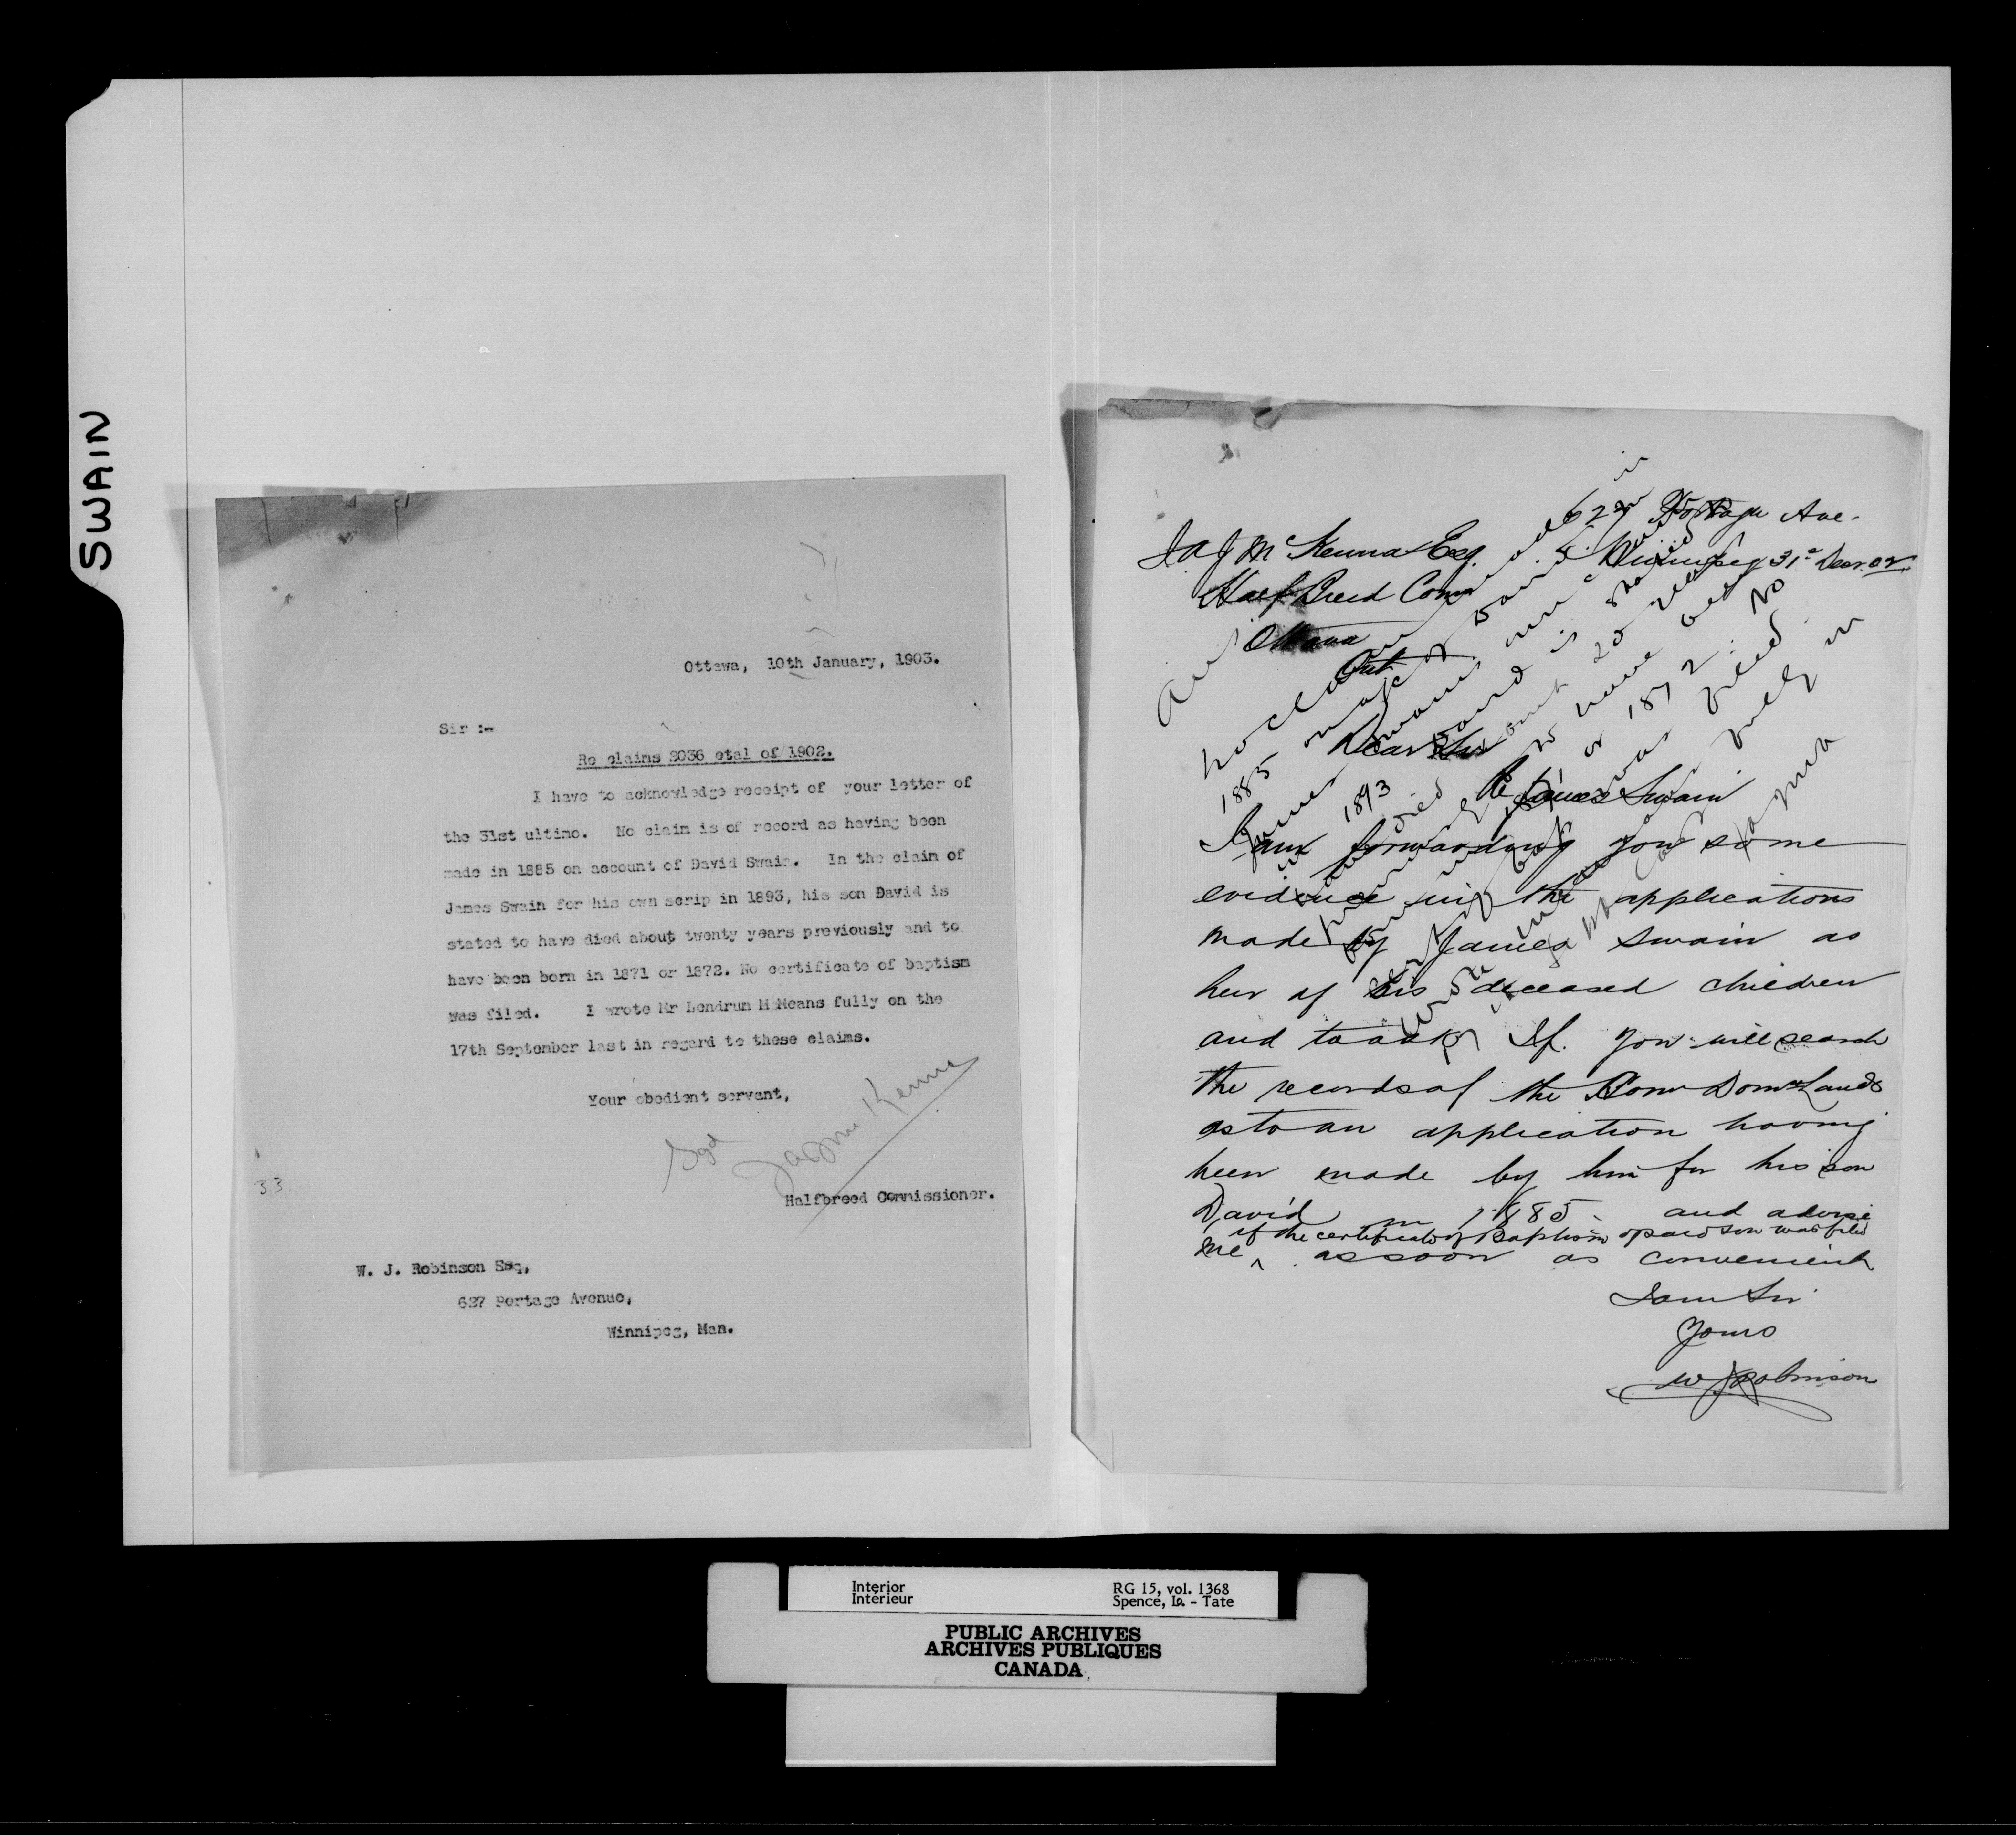 SWAIN
Ottawa, 10th January, 1903.
Sir :-
Re claims 2036 etal of 1902.
I have to acknowledge receipt of your letter of
the 31st ultimo. No claim is of record as having been
made in 1885 on account of David Swain. In the claim of
James Swain for his own scrip in 1893, his son David is
stated to have died about twenty years previously and to
have been born in 1871 or 1872. No certificate of baptism
was filed. I wrote Mr Lendrum McMeans fully on the
17th September last in regard to these claims.
Your obedient servant,
Sgd JAJ McKenna
Halfbreed Commissioner.
33
W. J. Robinson Esq,
627 Portage Avenue,
Winnipeg, Man.
627 Portage Ave.
J A J McKenna Esq. Winnipeg 31st Decr 02
Half Breed Comr
Ottawa
Ont
Dear Sir
Re James Swain
I am forwarding you some
evidence in the applications
made by James Swain as
heir of his deceased children
and to ask If you will search
the records of the Comr Domn Lands
as to an application having
been made by him for his son
David in 1885 and advise
if the certificate of Baptism of said son was filed
me ^ as soon as convenient
I am Sir
Yours
W J Robinson
Ans.
no claim
1885
James Swain
in 1893 and is stated
died about 20 years
to have been
1871 or 1872. No
was filed
fully in
Interior
Intérieur
RG 15, vol. 1368
Spence, Is. - Tate
PUBLIC ARCHIVES
ARCHIVES PUBLIQUES
CANADA